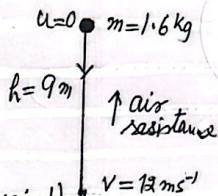 u=0 m=1.6kg
h=9m
↑ air
resistance
V=12ms⁻¹